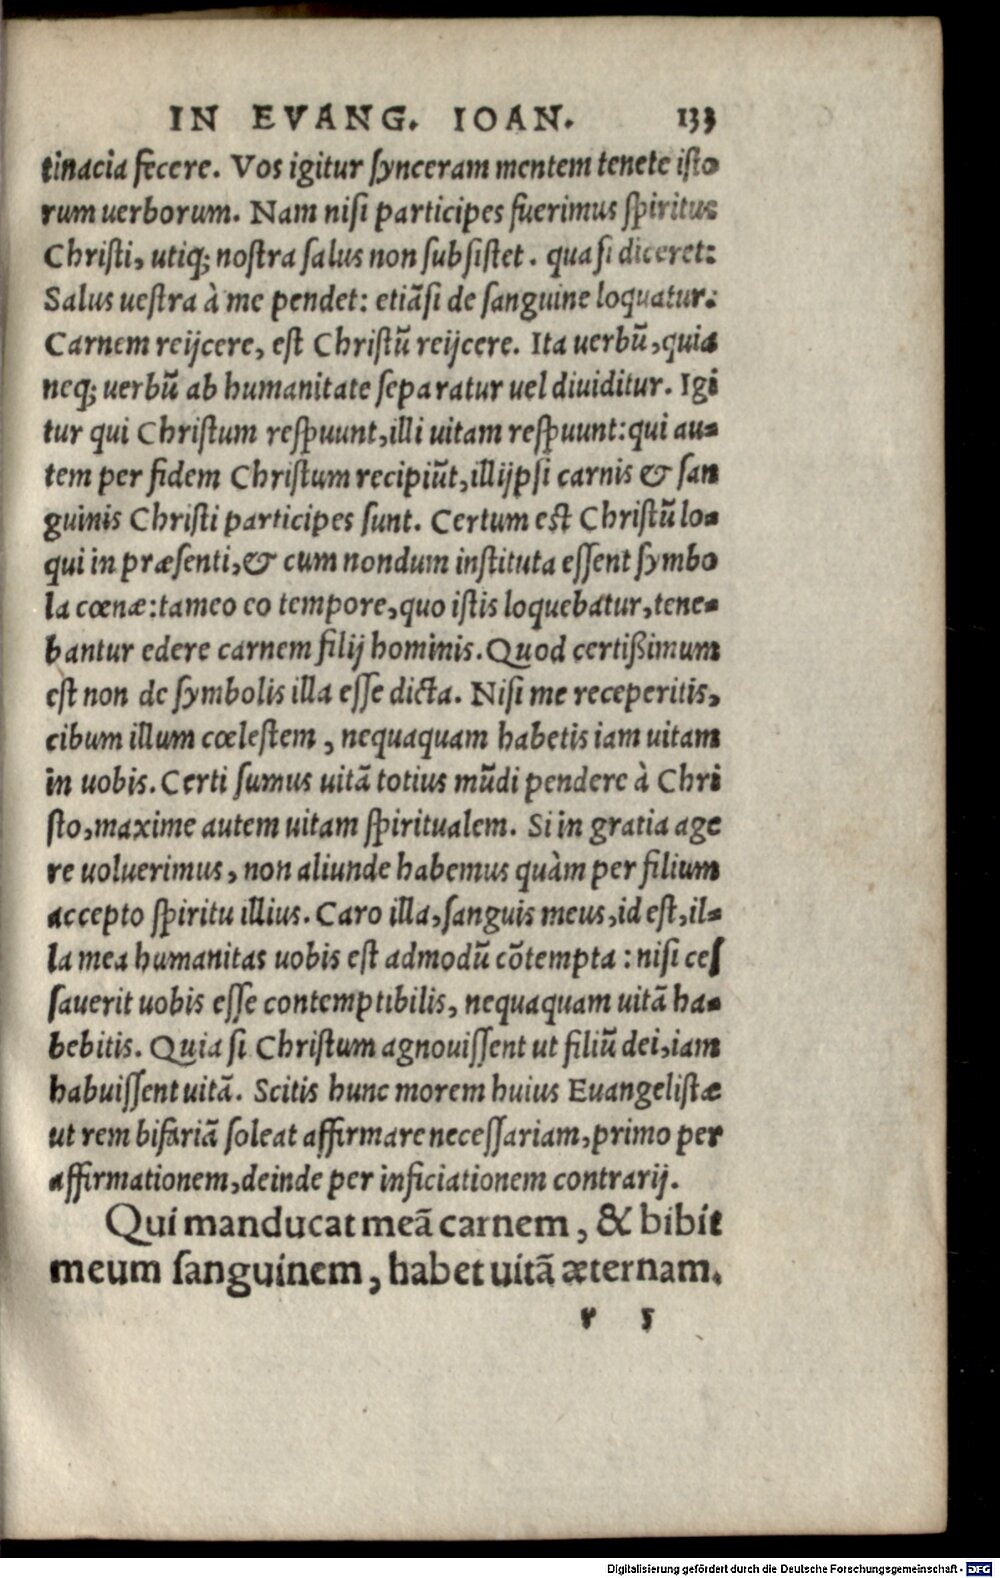 IN EVANG. IOAN. 133
tinacia fecere. Vos igitur synceram mentem tenete isto
rum uerborum. Nam nisi participes fuerimus spiritus
Christi, utiq; nostra salus non subsistet. quasi diceret:
Salus uestra à me pendet: etiãsi de sanguine loquatur:
Carnem reijcere, est Christũ reijcere. Ita uerbũ, quia
neq; uerbũ ab humanitate separatur uel diuiditur. Igi
tur qui Christum respuunt, illi uitam respuunt: qui au-
tem per fidem Christum recipiũt, illi ipsi carnis & san
guinis Christi participes sunt. Certum est Christũ lo-
qui in præsenti, & cum nondum instituta essent symbo
la cœnæ: tameo eo tempore, quo istis loquebatur, tene-
bantur edere carnem filij hominis. Quod certißimum
est non de symbolis illa esse dicta. Nisi me receperitis,
cibum illum cœlestem, nequaquam habetis iam uitam
in uobis. Certi sumus uitã totius mũdi pendere à Chri
sto, maxime autem uitam spiritualem. Si in gratia age
re uoluerimus, non aliunde habemus quàm per filium
accepto spiritu illius. Caro illa, sanguis meus, id est, il-
la mea humanitas uobis est admodũ cõtempta: nisi ces
sauerit uobis esse contemptibilis, nequaquam uitã ha-
bebitis. Quia si Christum agnouissent ut filiũ dei, iam
habuissent uitã. Scitis hunc morem huius Euangelistæ
ut rem bifariã soleat affirmare necessariam, primo per
affirmationem, deinde per inficiationem contrarij.
Qui manducat meã carnem, & bibit
meum sanguinem, habet uitã æternam.
r 5
Digitalisierung gefördert durch die Deutsche Forschungsgemeinschaft - DFG